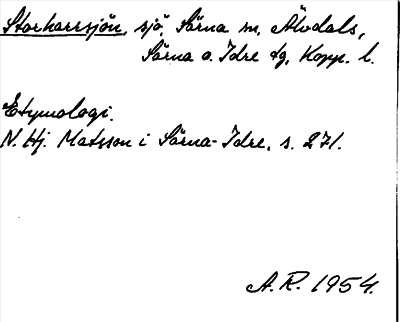 Storharrsjön, sjö, Särna sn, Älvdals,
Särna o. Idre tg, Kopp. l.
Etymologi.
N. Hj. Matsson i Särna-Idre, s. 271.
A.R. 1954.